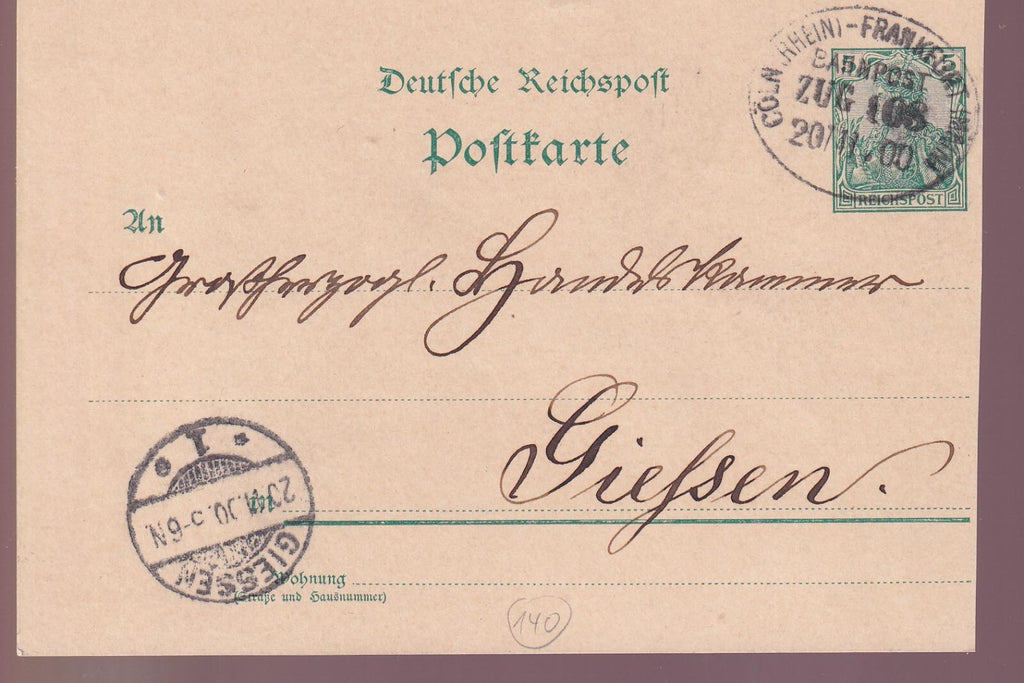 CÖLN (RHEIN)-FRANKFURT (MAIN)
BAHNPOST
ZUG 106
20/11.00
5
REICHSPOST
Deutsche Reichspost
Postkarte
An
Großherzogl. Handelskammer
Giessen.
I
20.11.00.5-6N
GIESSEN
in
Wohnung
(Straße und Hausnummer)
140